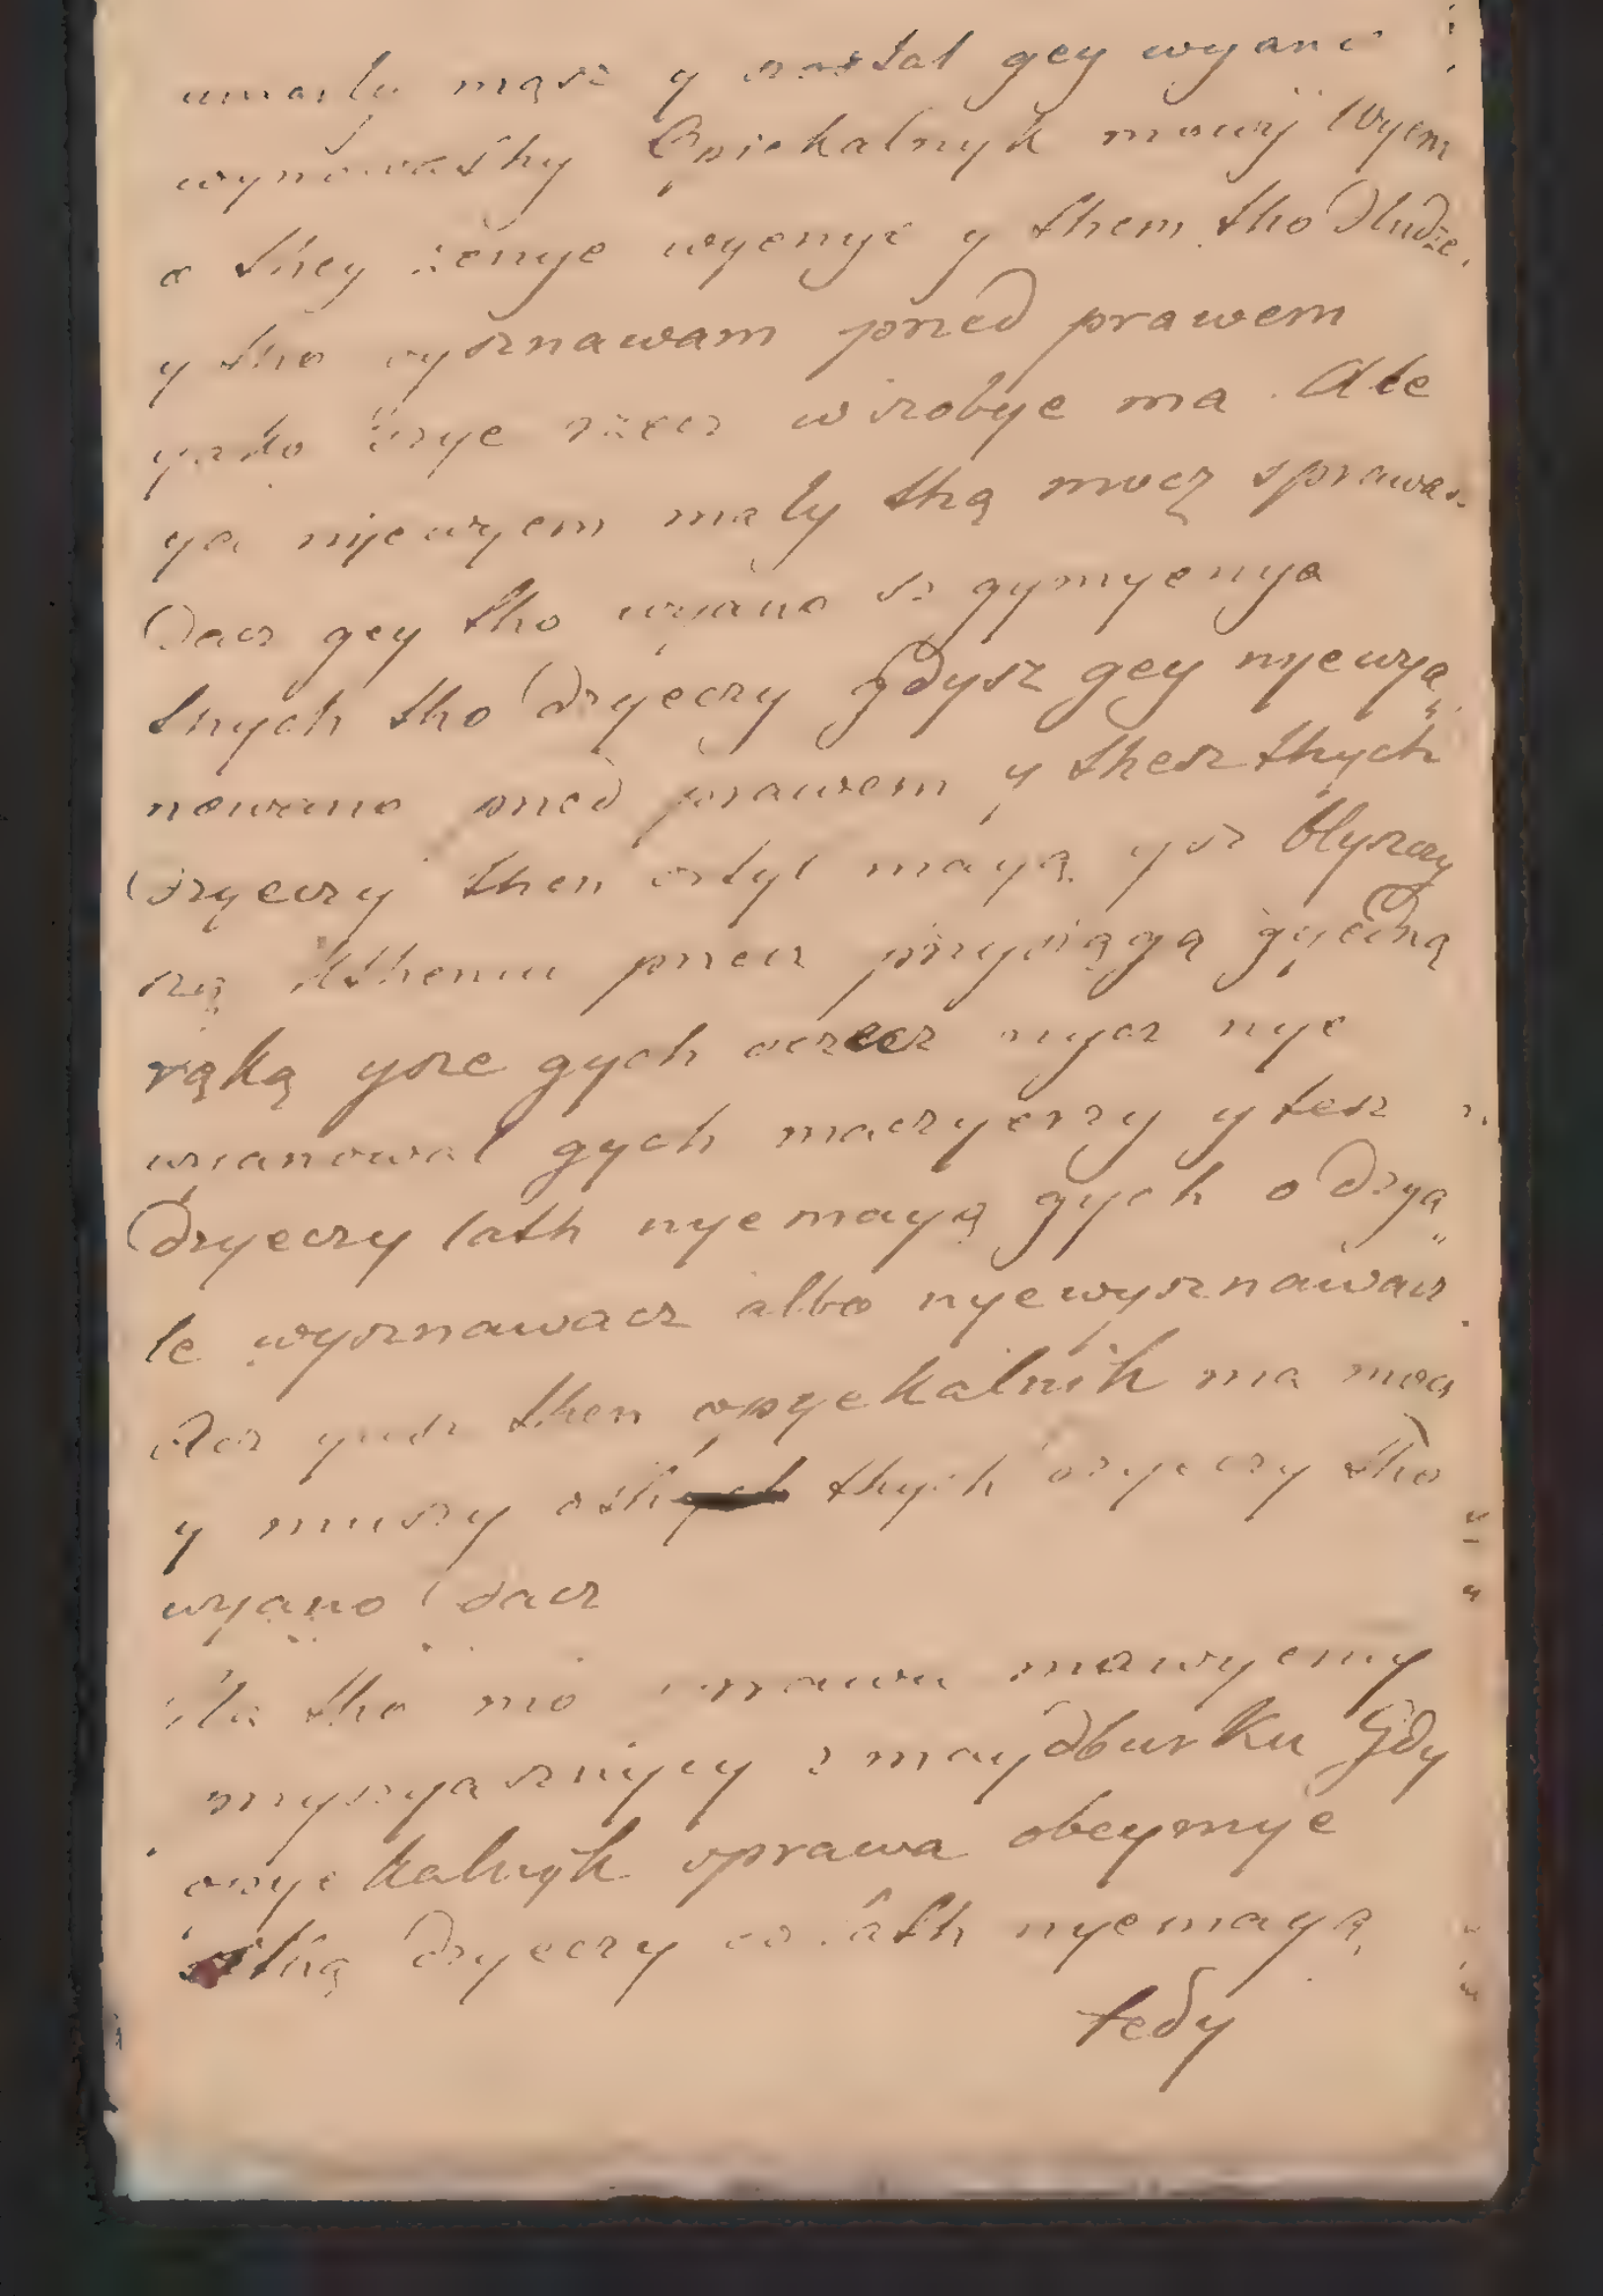 umarly mąsz y został gey wyano
wynowathy Opiekalnyk mowij Wyem
o they żenye wyenye y them tho Dludze,
y tho wysznawam przed prawem
yako szye rzecz w szobye ma. Ale
ya nijewyem maly thą moczą sprawas
Dacz gey tho wyano sz gymyenya
thych tho Dzyeczy gdysz gey nyewya„
nowano przed prawem y thesz thych
Dzyeczy then ortyl mayą ysz blyszczy
szą kthemu przez przysięgą gyedną
rąką ysze gych oczecz nycz nye
wianowal gych maczyerzy y tesz
Dzyeczy lath nye mayą gych o dzya„
le wysznawacz albo nyewysznawacz.
Acz yusz then opyekalnik ma mocz
y muszy oth thych dzyeczy tho
wyano dacz
Na tho mÿ prawu mowyemy
przyszyasznyczy z maydburku Gdy
opyekalnyk sprawa obeymye
thą dzyeczy co lath nyemayą
tedy